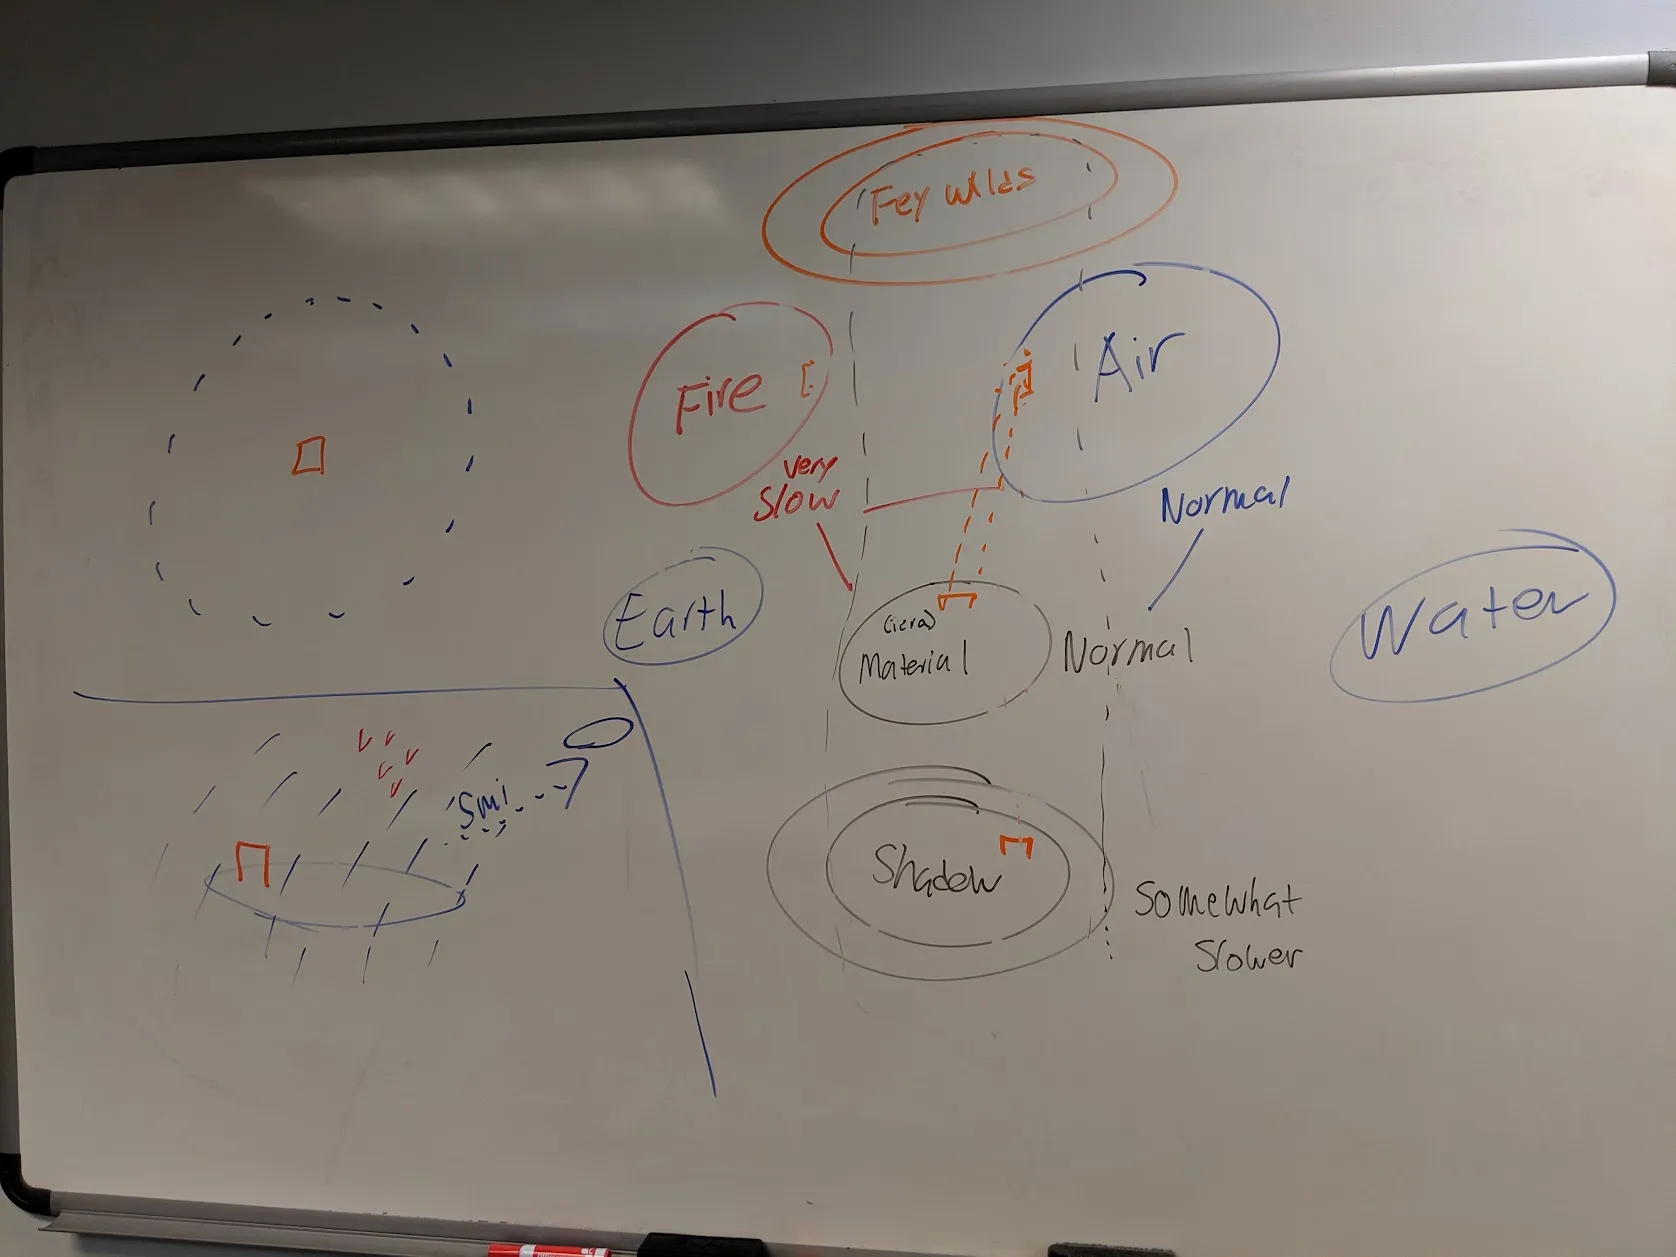 Fey wilds
Fire
Air
very
Slow
Normal
Earth
Material
Normal
Water
5mi
Shadow
Somewhat
Slower